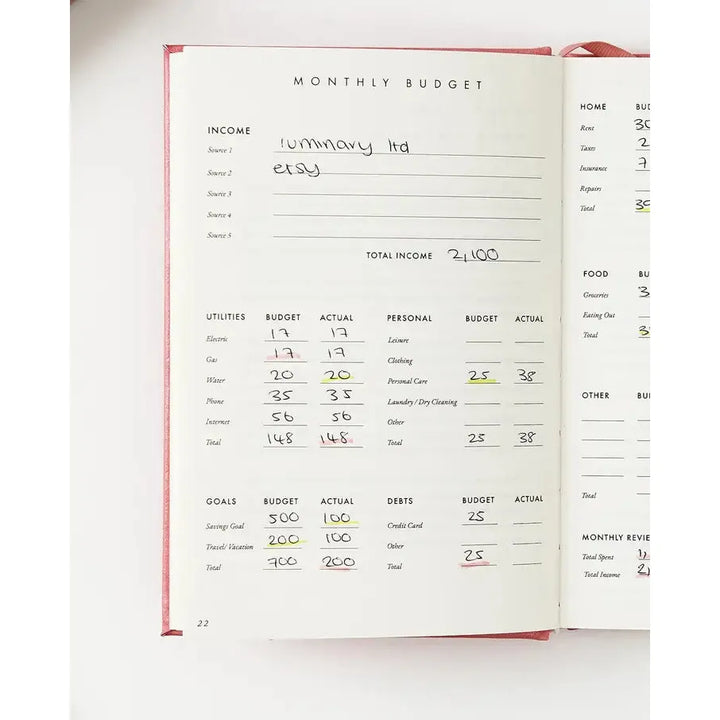 MONTHLY BUDGET
INCOME
Source 1 luminary ltd
Source 2 etsy
Source 3
Source 4
Source 5
TOTAL INCOME 2,100
UTILITIES BUDGET ACTUAL
Electric 17 17
Gas 17 17
Water 20 20
Phone 35 35
Internet 56 56
Total 148 148
PERSONAL BUDGET ACTUAL
Leisure
Clothing
Personal Care 25 38
Laundry / Dry Cleaning
Other
Total 25 38
GOALS BUDGET ACTUAL
Savings Goal 500 100
Travel/ Vacation 200 100
Total 700 200
DEBTS BUDGET ACTUAL
Credit Card 25
Other
Total 25
22
HOME
Rent
Taxes
Insurance
Repairs
Total
FOOD
Groceries
Eating Out
Total
OTHER
Total
MONTHLY
Total Spent
Total Income